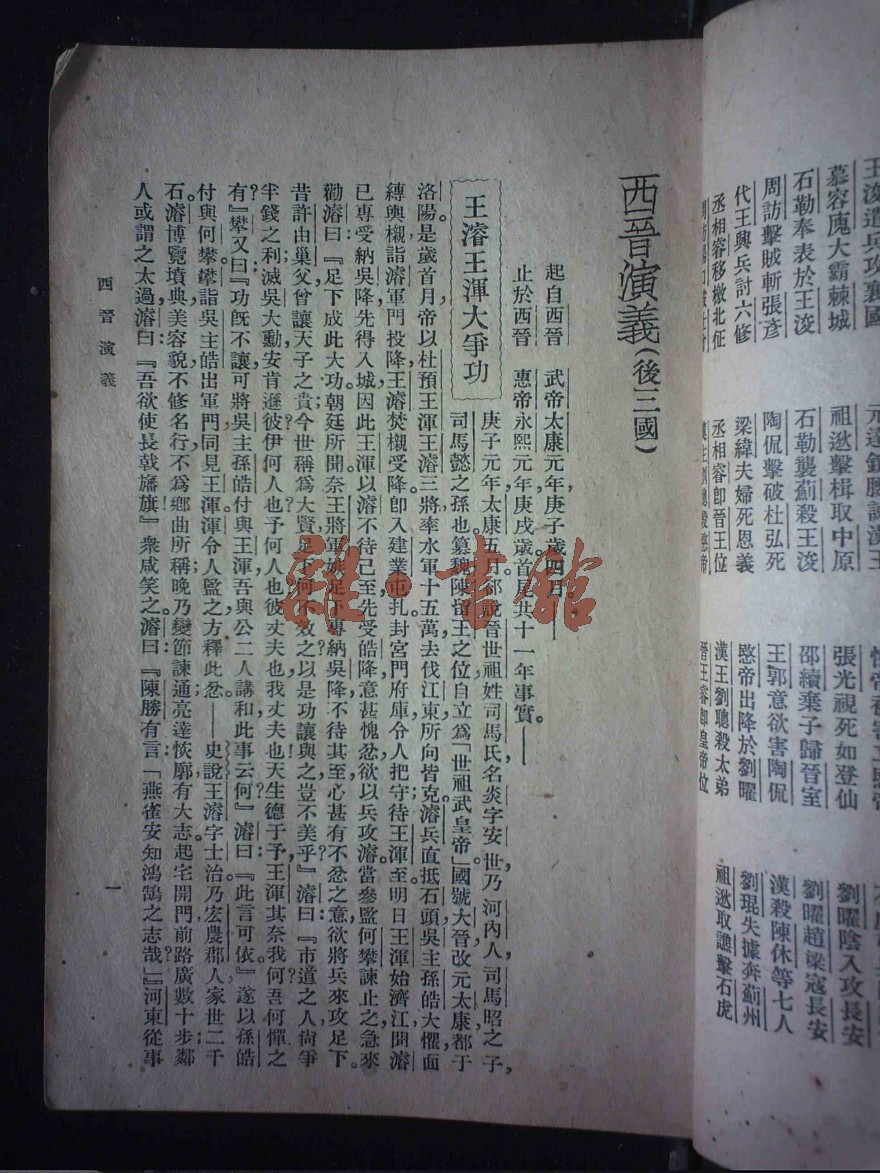 王浚遣兵攻襄國
慕容廆大霸棘城　祖逖擊楫取中原　張光視死如登仙　劉曜陰入攻長安
石勒奉表於王浚　石勒襲薊殺王浚　邵續棄子歸晉室　劉曜趙梁寇長安
周訪擊賊斬張彥　陶侃擊破杜弘死　王郭意欲害陶侃　漢殺陳休等七人
代王興兵討六修　梁緯夫婦死恩義　愍帝出降於劉曜　劉琨失據奔薊州
丞相容移檄北征　丞相容卽晉王位　漢王劉聰殺太弟　祖逖取譙擊石虎
漢主劉聰殺愍帝　晉王容卽皇帝位
西晉演義(後三國)
起自西晉　武帝太康元年,庚子歲四月,
止於西晉　惠帝永熙元年,庚戌歲首尾共十一年事實。——
王濬王渾大爭功
庚子元年,太康五月,却說晉世祖姓司馬氏,名炎字安世,乃河內人,司馬昭之子,
司馬懿之孫也,纂魏陳留王之位,自立爲「世祖武皇帝」國號大晉,改元太康,都于
洛陽。是歲首月,帝以杜預王渾王濬三將,率水軍十五萬去伐江東,所向皆克,濬兵直抵石頭,吳主孫皓大懼,面
縛輿櫬,詣濬軍門投降,王濬焚櫬受降,卽入建業屯扎,封宮門府庫,令人把守,待王渾至,明日,王渾始濟江,聞濬
已專受納吳降,先得入城,因此王渾以濬不待已至,先受皓降,意甚愧忿,欲以兵攻濬。當參監何攀諫止之,急來
勸濬曰:『足下成此大功,朝廷所聞,奈王將軍嫉足下專納吳降,不待其至,心甚有不忿之意,欲將兵來攻足下。
昔許由巢父曾讓天子之貴,今世稱爲大賢,足下何不效之,以是功讓與之,豈不美乎?』濬曰:『市道之人,尙爭
半錢之利,滅吳大勳,安肯遜彼?伊何人也?予何人也?彼丈夫也,我丈夫也!天生德于予,王渾其奈我何?吾何憚之
有?』攀又曰:『功旣不讓,可將吳主孫皓付與王渾,吾與公二人講和此事云何?』濬曰:『此言可依。』遂以孫皓
付與何攀,攀詣吳主皓出軍門,同見王渾,渾令人監之,方釋此忿。——史說王濬字士治,乃宏農郡人,家世二千
石。濬博覽墳典,美容貌,不修名行,不爲鄉曲所稱,晚乃變節,諫通亮達,恢廓有大志,起宅開門,前路廣數十步,鄰
人或謂之太過,濬曰:『吾欲使長戟旛旗!』衆咸笑之,濬曰:『陳勝有言:「燕雀安知鴻鵠之志哉」』河東從事
西晉演義
一
雜·書館